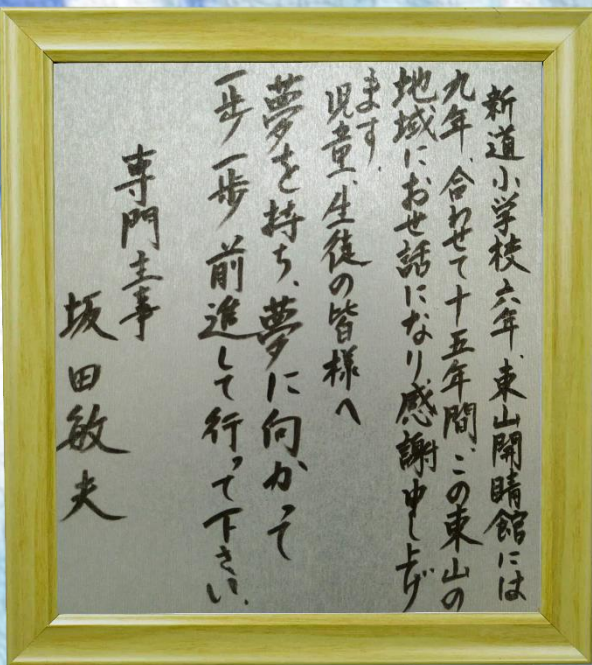 新道小学校六年、東山開睛館には
九年、合わせて十五年間、この東山の
地域にお世話になり感謝申し上げ
ます。
児童、生徒の皆様へ
夢を持ち、夢に向かって
一歩一歩前進して行って下さい。
専門主事
坂田敏夫